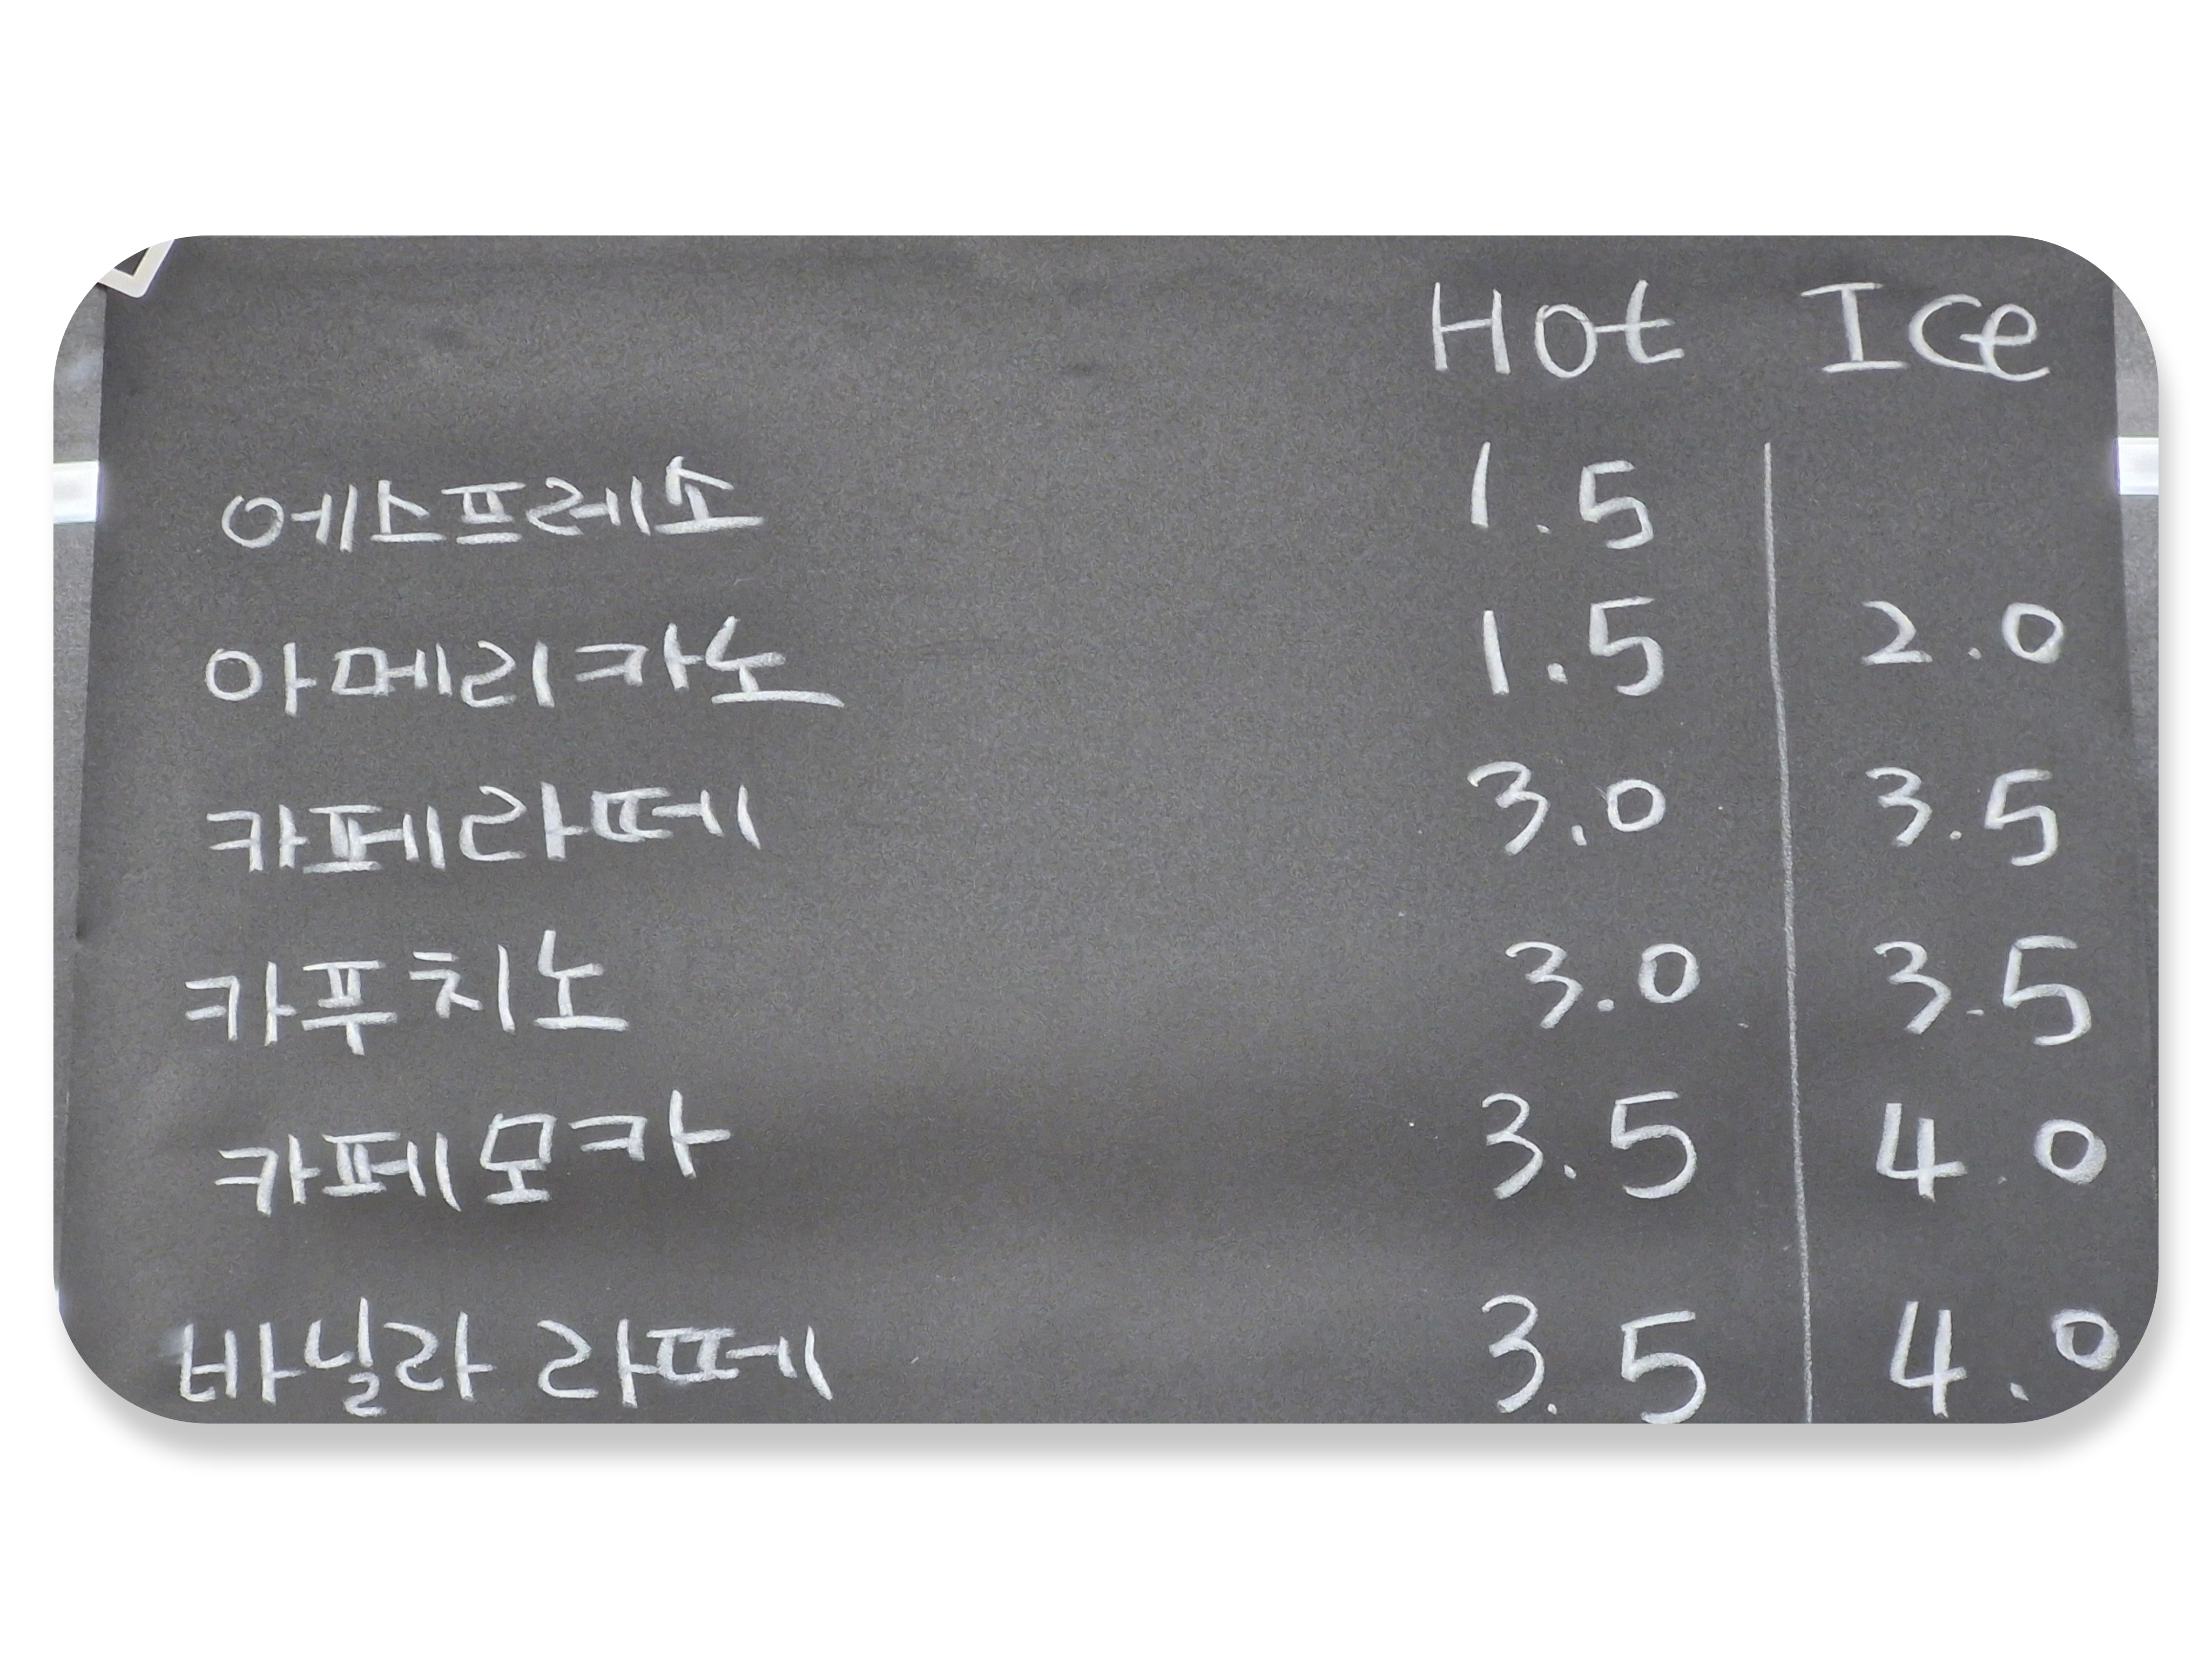 Hot Ice
에스프레소 1.5
아메리카노 1.5 2.0
카페라떼 3.0 3.5
카푸치노 3.0 3.5
카페모카 3.5 4.0
바닐라 라떼 3.5 4.0